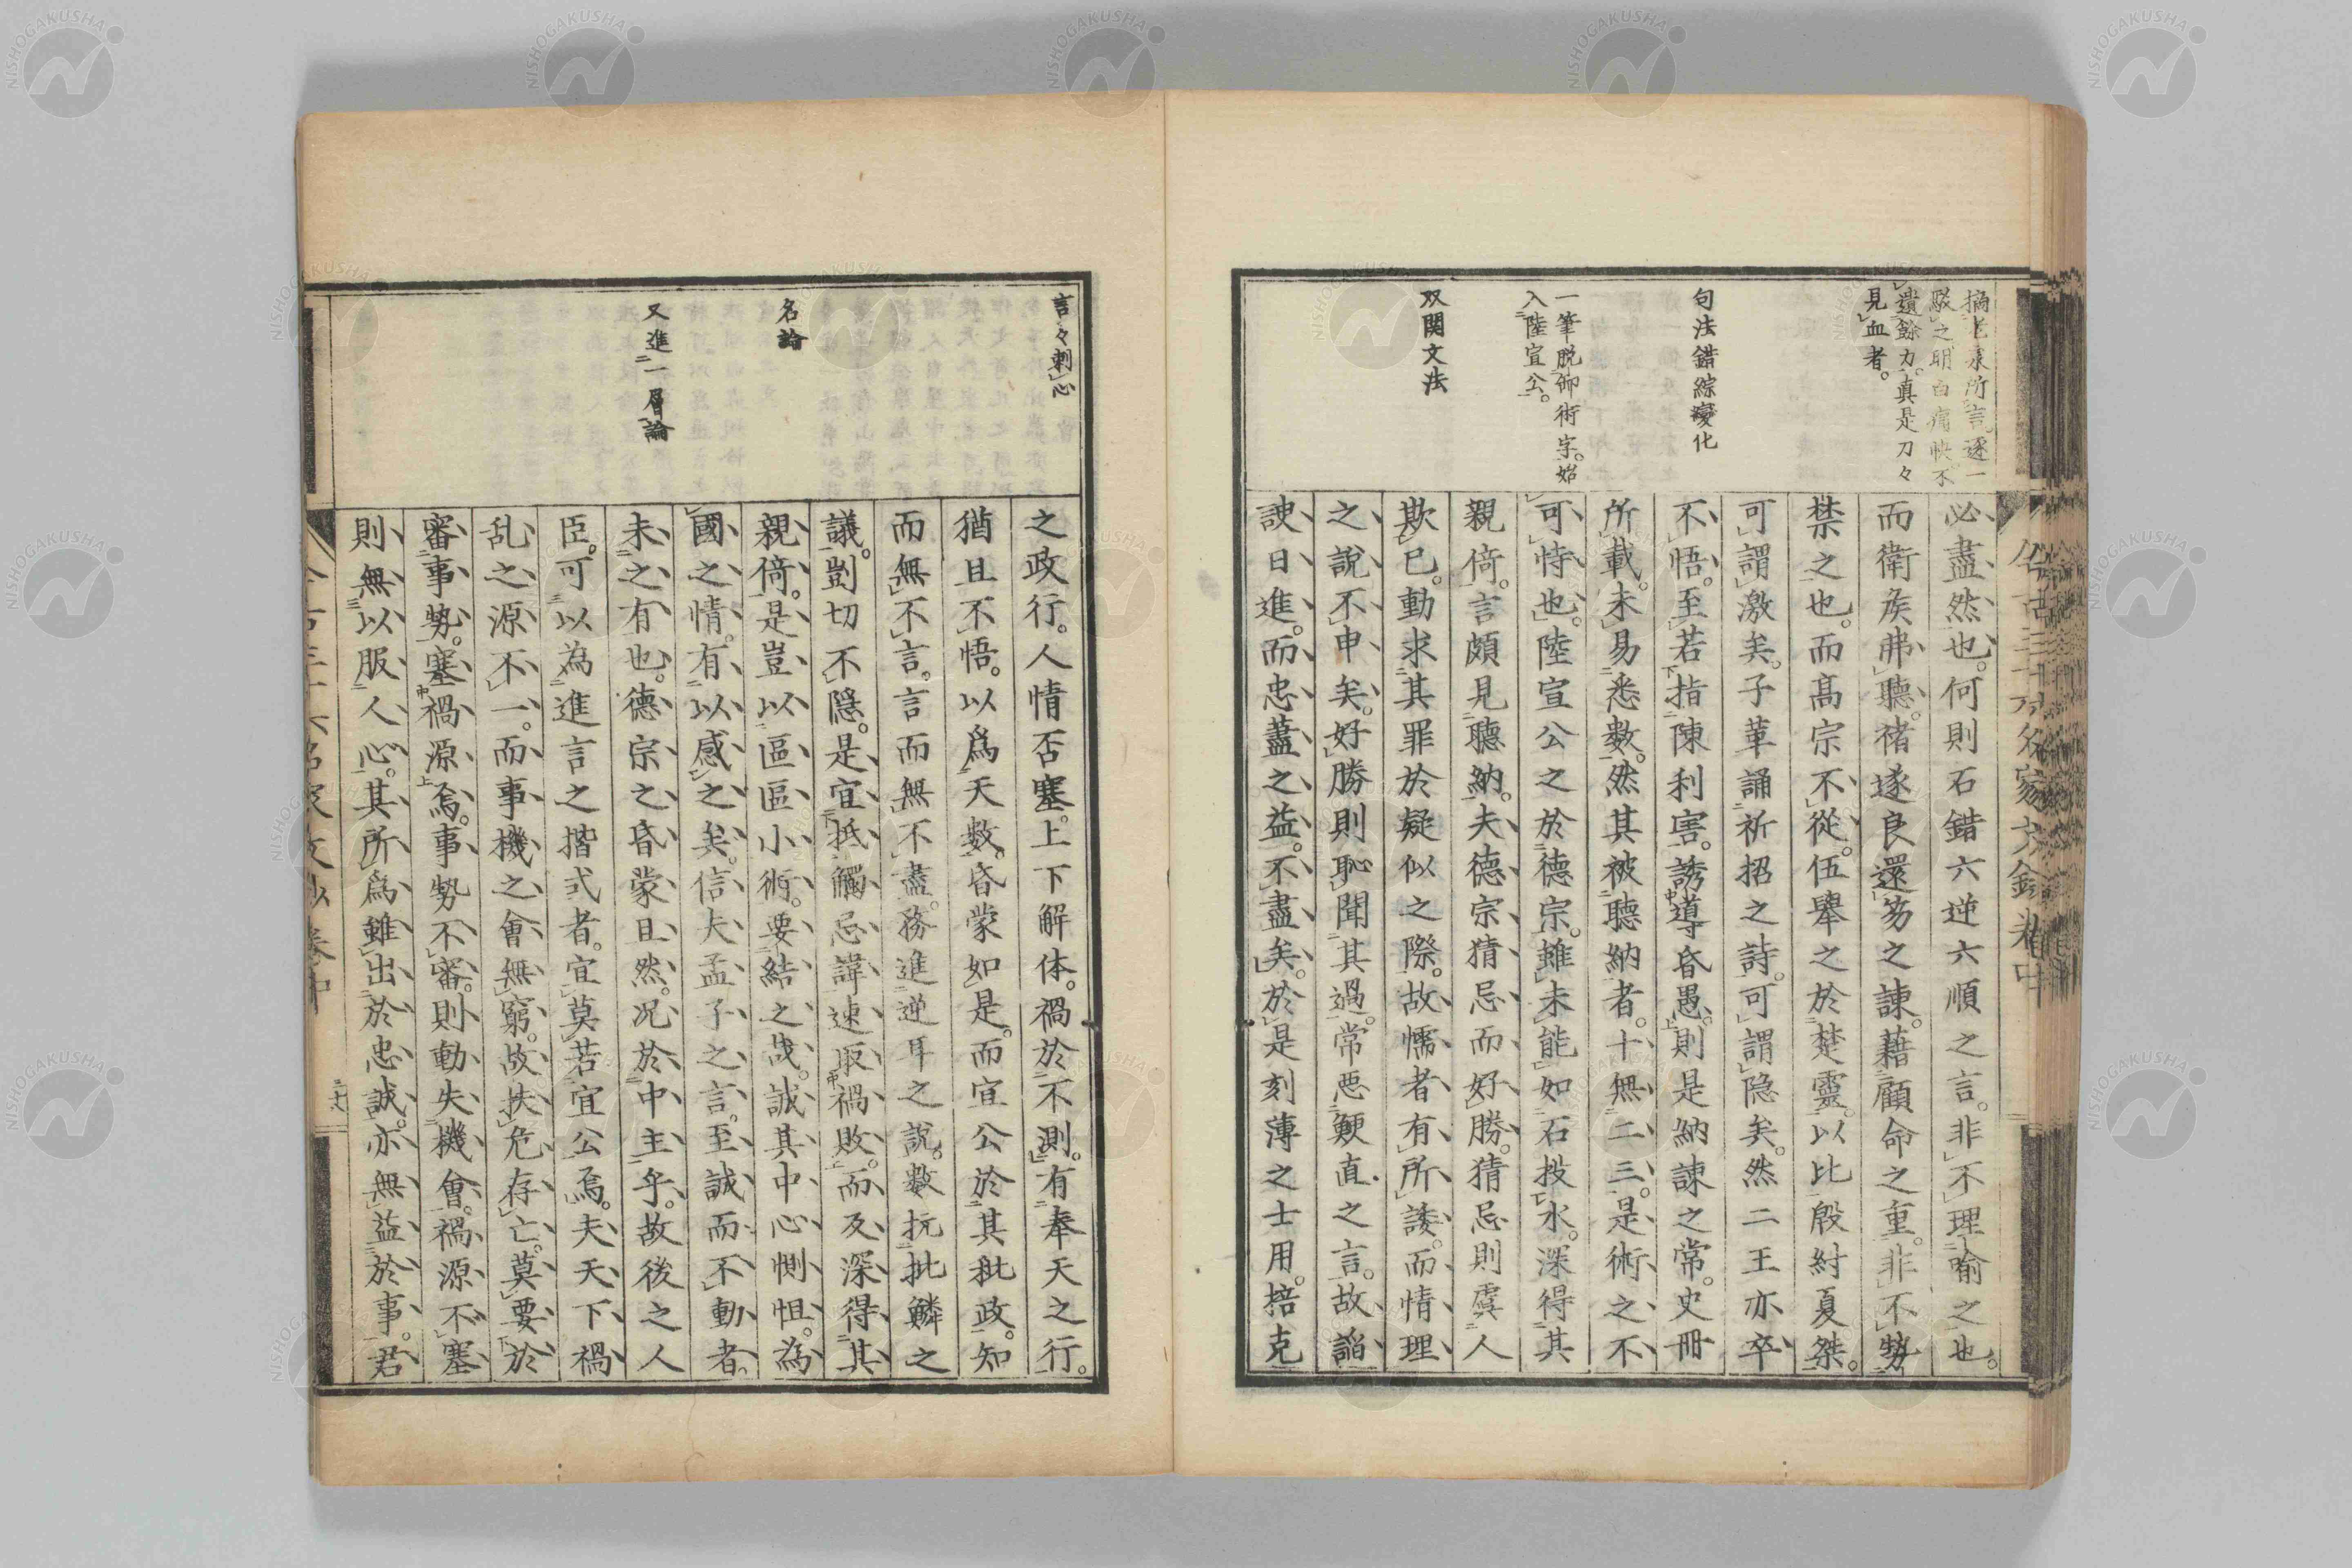 摘老泉所言逐一
駁之明白痛快不
遺餘力。真是刀々
見血者。
句法錯綜変化
一筆脱卸術字。始
入陸宣公。
双関文法
必盡然也。何則石錯六逆六順之言。非不理喻之也。
而衛矦弗聽。褚遂良還笏之諫。藉顧命之重。非不勢
禁之也。而髙宗不從。伍舉之於楚靈。以比殷紂夏桀。
可謂激矣。子革誦祈招之詩。可謂隐矣。然二王亦卒
不悟。至若指陳利害。誘導昏愚。則是納諫之常。史冊
所載。未易悉數。然其被聽納者。十無二三。是術之不
可恃也。陸宣公之於德宗。雖未能如石投水。深得其
親倚。言頗見聽納。夫德宗猜忌而好勝。猜忌則虞人
欺已。動求其罪於疑似之際。故懦者有所諉。而情理
之説不申矣。好勝則恥聞其過。常悪鯁直之言。故諂
諛日進。而忠藎之益。不盡矣。於是刻薄之士用。掊克
言々刺心
名論
又進一層論
之政行。人情否塞。上下解体。禍於不測。有奉天之行。
猶且不悟。以爲天數。昏蒙如是。而宜公於其批政。知
而無不言。言而無不盡。務進逆耳之説。數抗批鱗之
議。剴切不隱。是宜抵觸忌諱速取禍敗。而及深得其
親倚。是豈以區區小術。要結之㦲。誠其中心惻怛。為
國之情。有以感之矣。信夫孟子之言。至誠而不動者。
未之有也。德宗之昏蒙且然。况於中主乎。故後之人
臣。可以為進言之揩式者。宜莫若宜公焉。夫天下禍
乱之源不一。而事機之會無窮。故扶危存亡。莫要於
審事勢。塞禍源焉。事勢不審。則動失機會。禍源不塞
則無以服人心。其所爲雖出於忠誠。亦無益於事。君